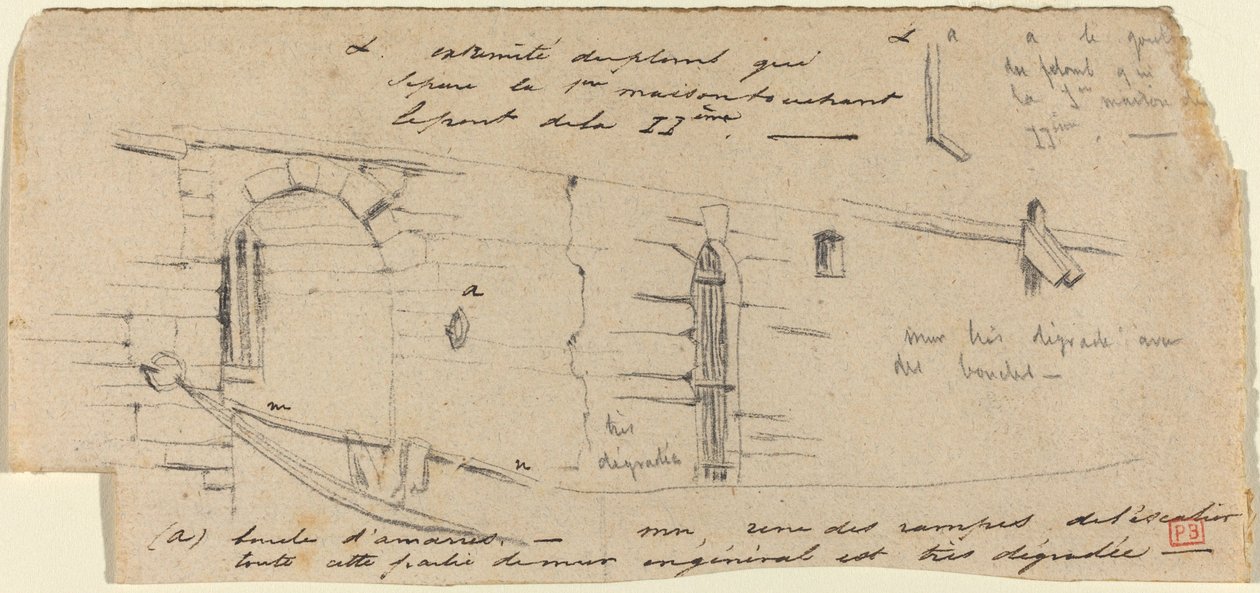 α. extremité du plomb qui
separe la 1ere maison touchant
le pont de la IIème. —
α a
a le
du plomb qui
la 1ere maison de
IIème. —
a
mur très dégradé avec
des boucles —
m
très
dégradée
n
(a) boucle d'amarres. — mn, une des rampes de l'escalier
toute cette partie de mur en général est très dégradée —
PB